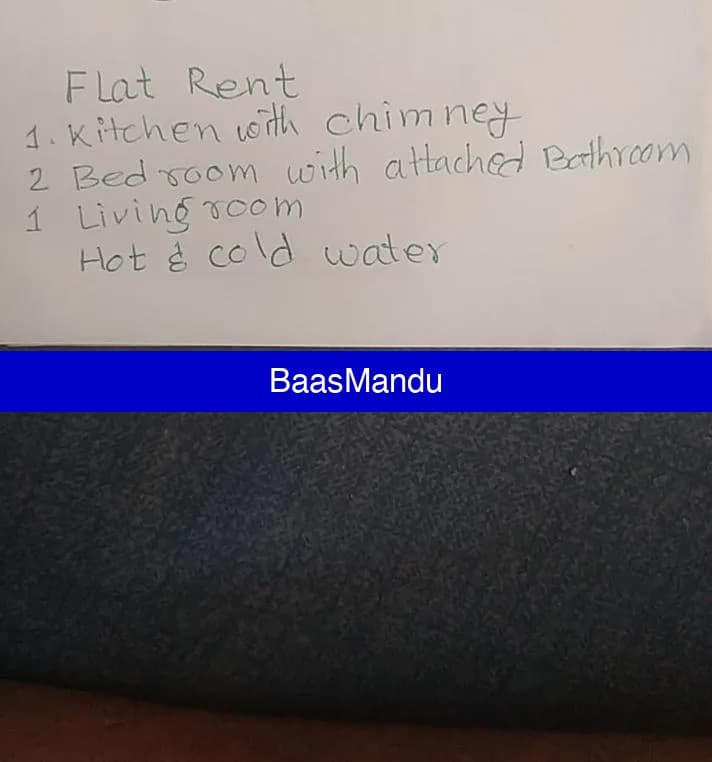 Flat Rent
1. Kitchen with chimney
2 Bed room with attached Bathroom
1 Living room
Hot & cold water
BaasMandu